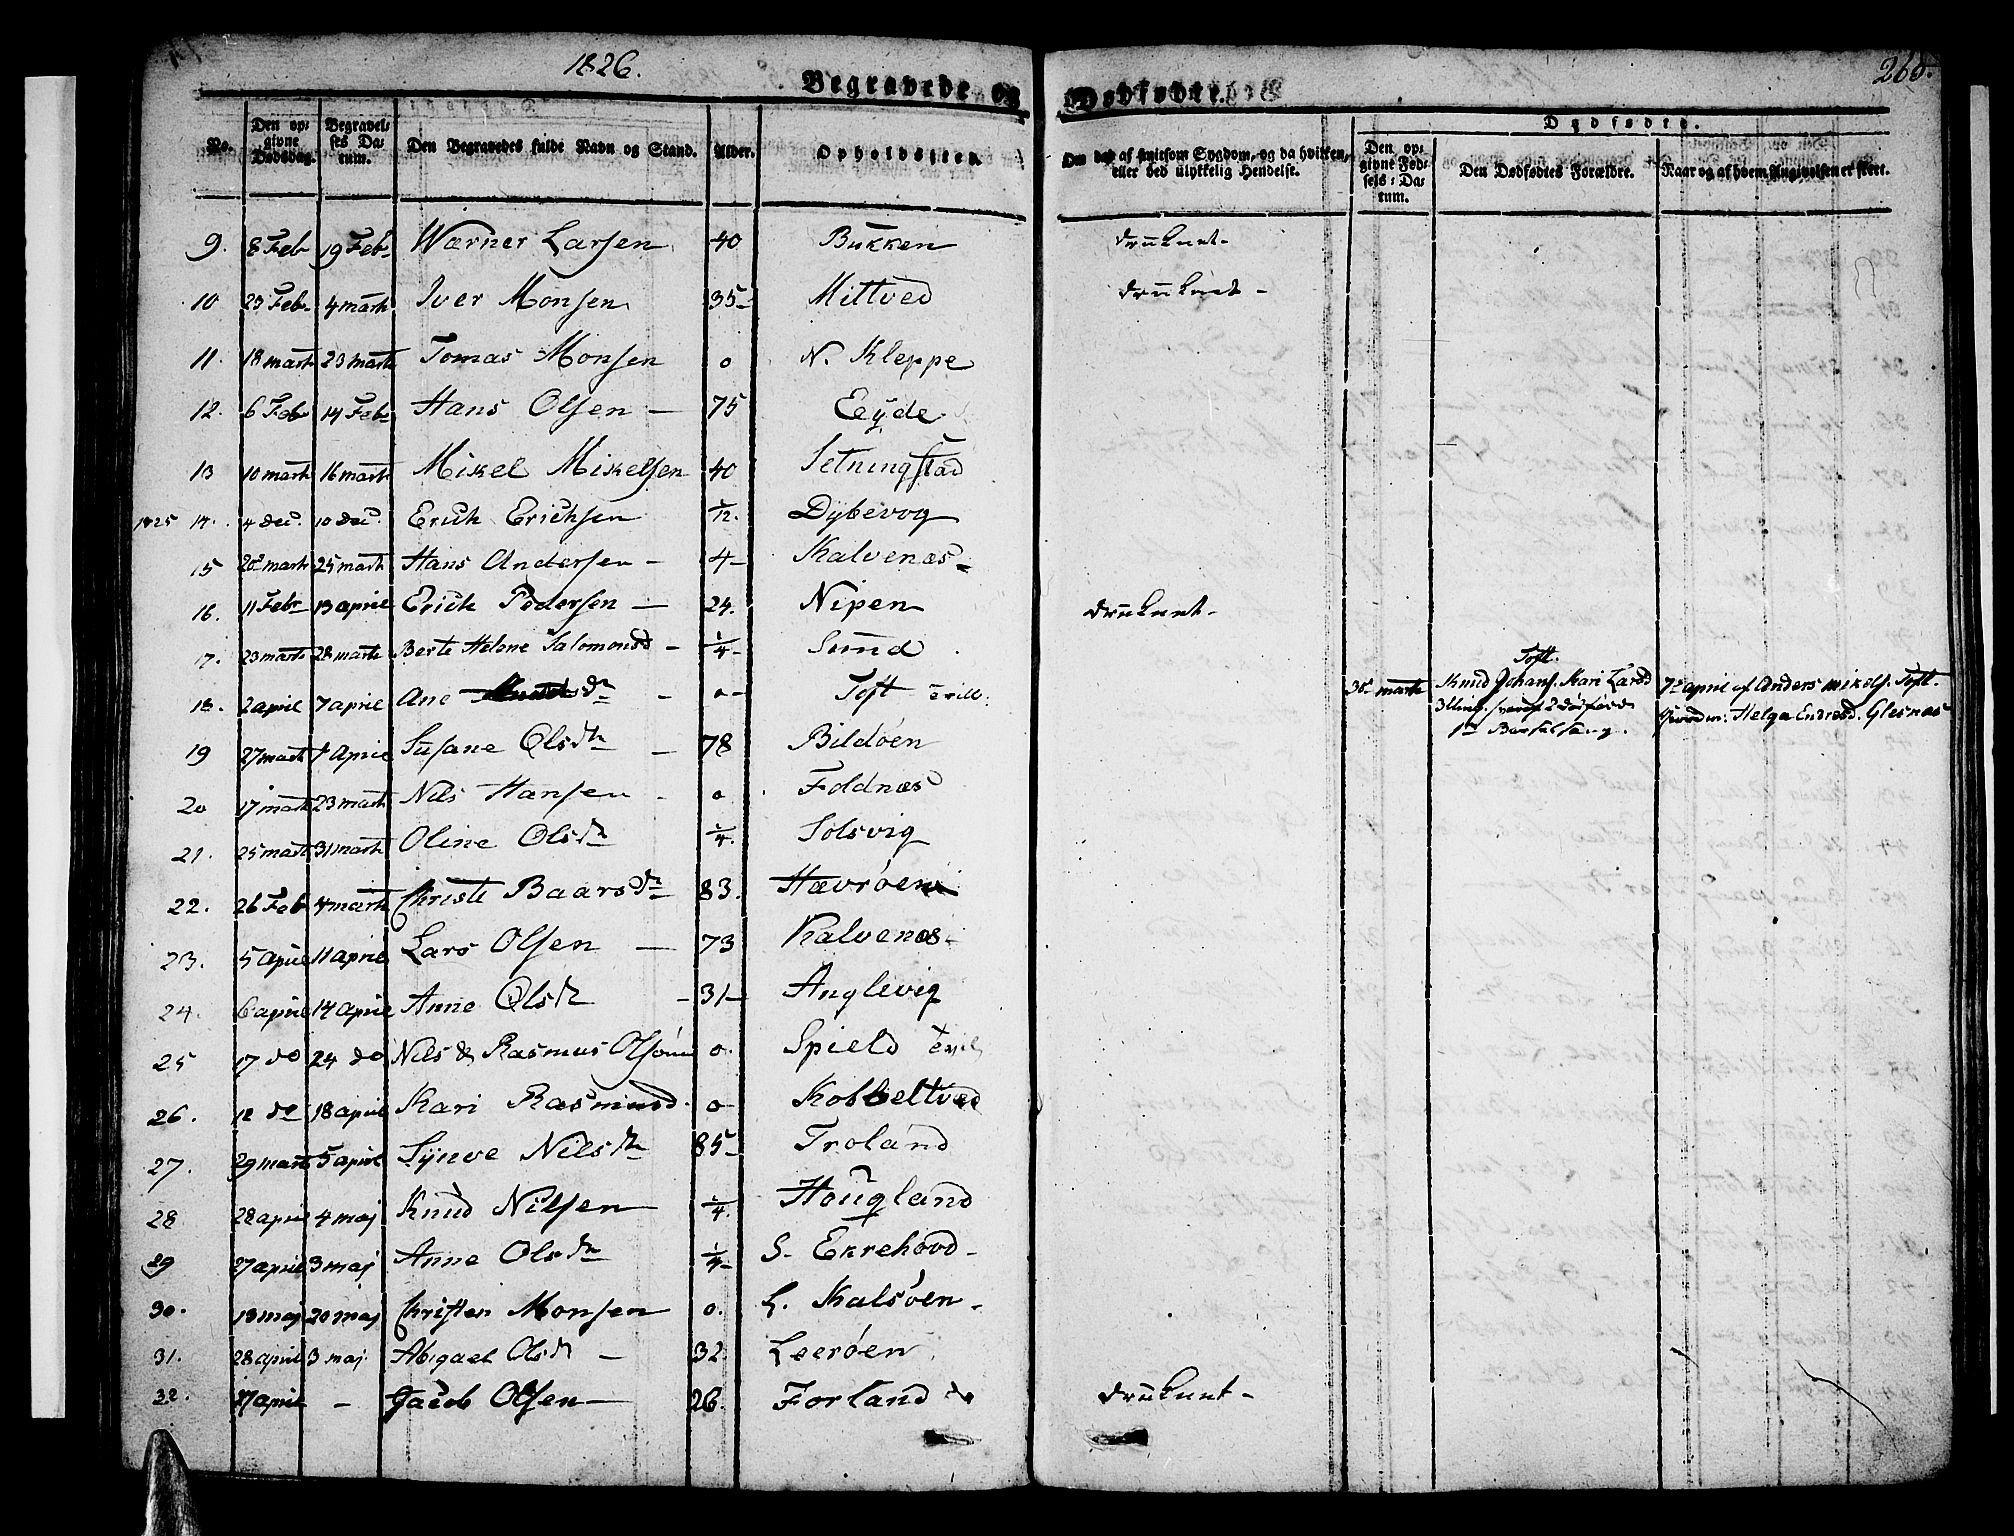 1826.
268.
Begravede og Dødfødte.
No. | Den opgivne Dødsdag. | Begravelses Datum. | Den Begravedes fulde Navn og Stand. | Alder. | Opholdssted. | Om død af smitsom Sygdom, og da hvilken, eller ved ulykkelig Hendelse. | Dødfødte. | Den opgivne Fødsels-Datum. | Den Dødfødtes Forældre. | Naar og af hvem Angivelsen er skeet.
9. | 8 Feb | 19 Feb | Wærner Larsen | 40 | Bukken | druknet -
10 | 23 Feb | 4 marti | Iver Monsen | 35 - | Mittved | druknet -
11. | 18 marti | 23 marti | Tomas Monsen | 0 | N. Kleppe
12. | 6 Feb | 14 Feb | Hans Olsen - | 75 | Eÿde
13 | 10 marti | 16 marti | Mikel Mikelsen | 40 | Setningstad
1825 14. | 4 dec. | 10 dec. | Erich Erichsen | 1/12. | Dÿbevog
15 | 20 marti | 25 marti | Hans Andersen - | 4 - | Kalvenæs -
16. | 11 Febr | 13 april | Erich Pedersen - | 24. | Nipen | druknet -
17. | 23 marti | 28 marti | Berte Helene Salomonsd - | 1/4 - | Sund
18. | 2 april | 7 april | Ane dr | 0 - | Toft | 30 marti | Toft. Knud Johans. Kari Larsd | 7 april af Anders Mikels. Toft.
Helga Endresd. Glesnæs
19 | 27 marti | 7 April | Susane Olsdr - | 78 | Bildøen
20 | 17 marti | 23 marti | Nils Hansen - | 0 | Foldnæs
21. | 25 marti | 31 marti | Oline Olsdr | 1/4. | Solsvig
22. | 26 Feb | 4 marti | Christi Baarsdr | 83. | Hævrøen
23. | 5 april | 11 april | Lars Olsen - | 73 | Kalvenæs -
24. | 6 april | 14 april | Anne Olsdr | - 31 - | Anglevig
25 | 17 do | 24 do | Nils & Rasmus | 0. | Spield
26. | 12 do | 18 april | Kari Rasmusd | 0 - | Kobbeltved
27. | 29 marti | 5 april | Sÿnve Nilsdr | 85 - | Troland
28 | 28 april | 4 maj | Knud Nilsen | 1/4. | Hougland
29 | 27 april | 3 maj | Anne Olsdr | 1/4 - | S. Ekrehovd -
30. | 13 maj | 20 maj | Christen Monsen | 0. | L. Kalsøen -
31. | 28 april | 3 maj | Abigael Olsdr - | 32. | Leerøen
32. | 17 april | - | Jacob Olsen - | 26. | Forland | druknet -